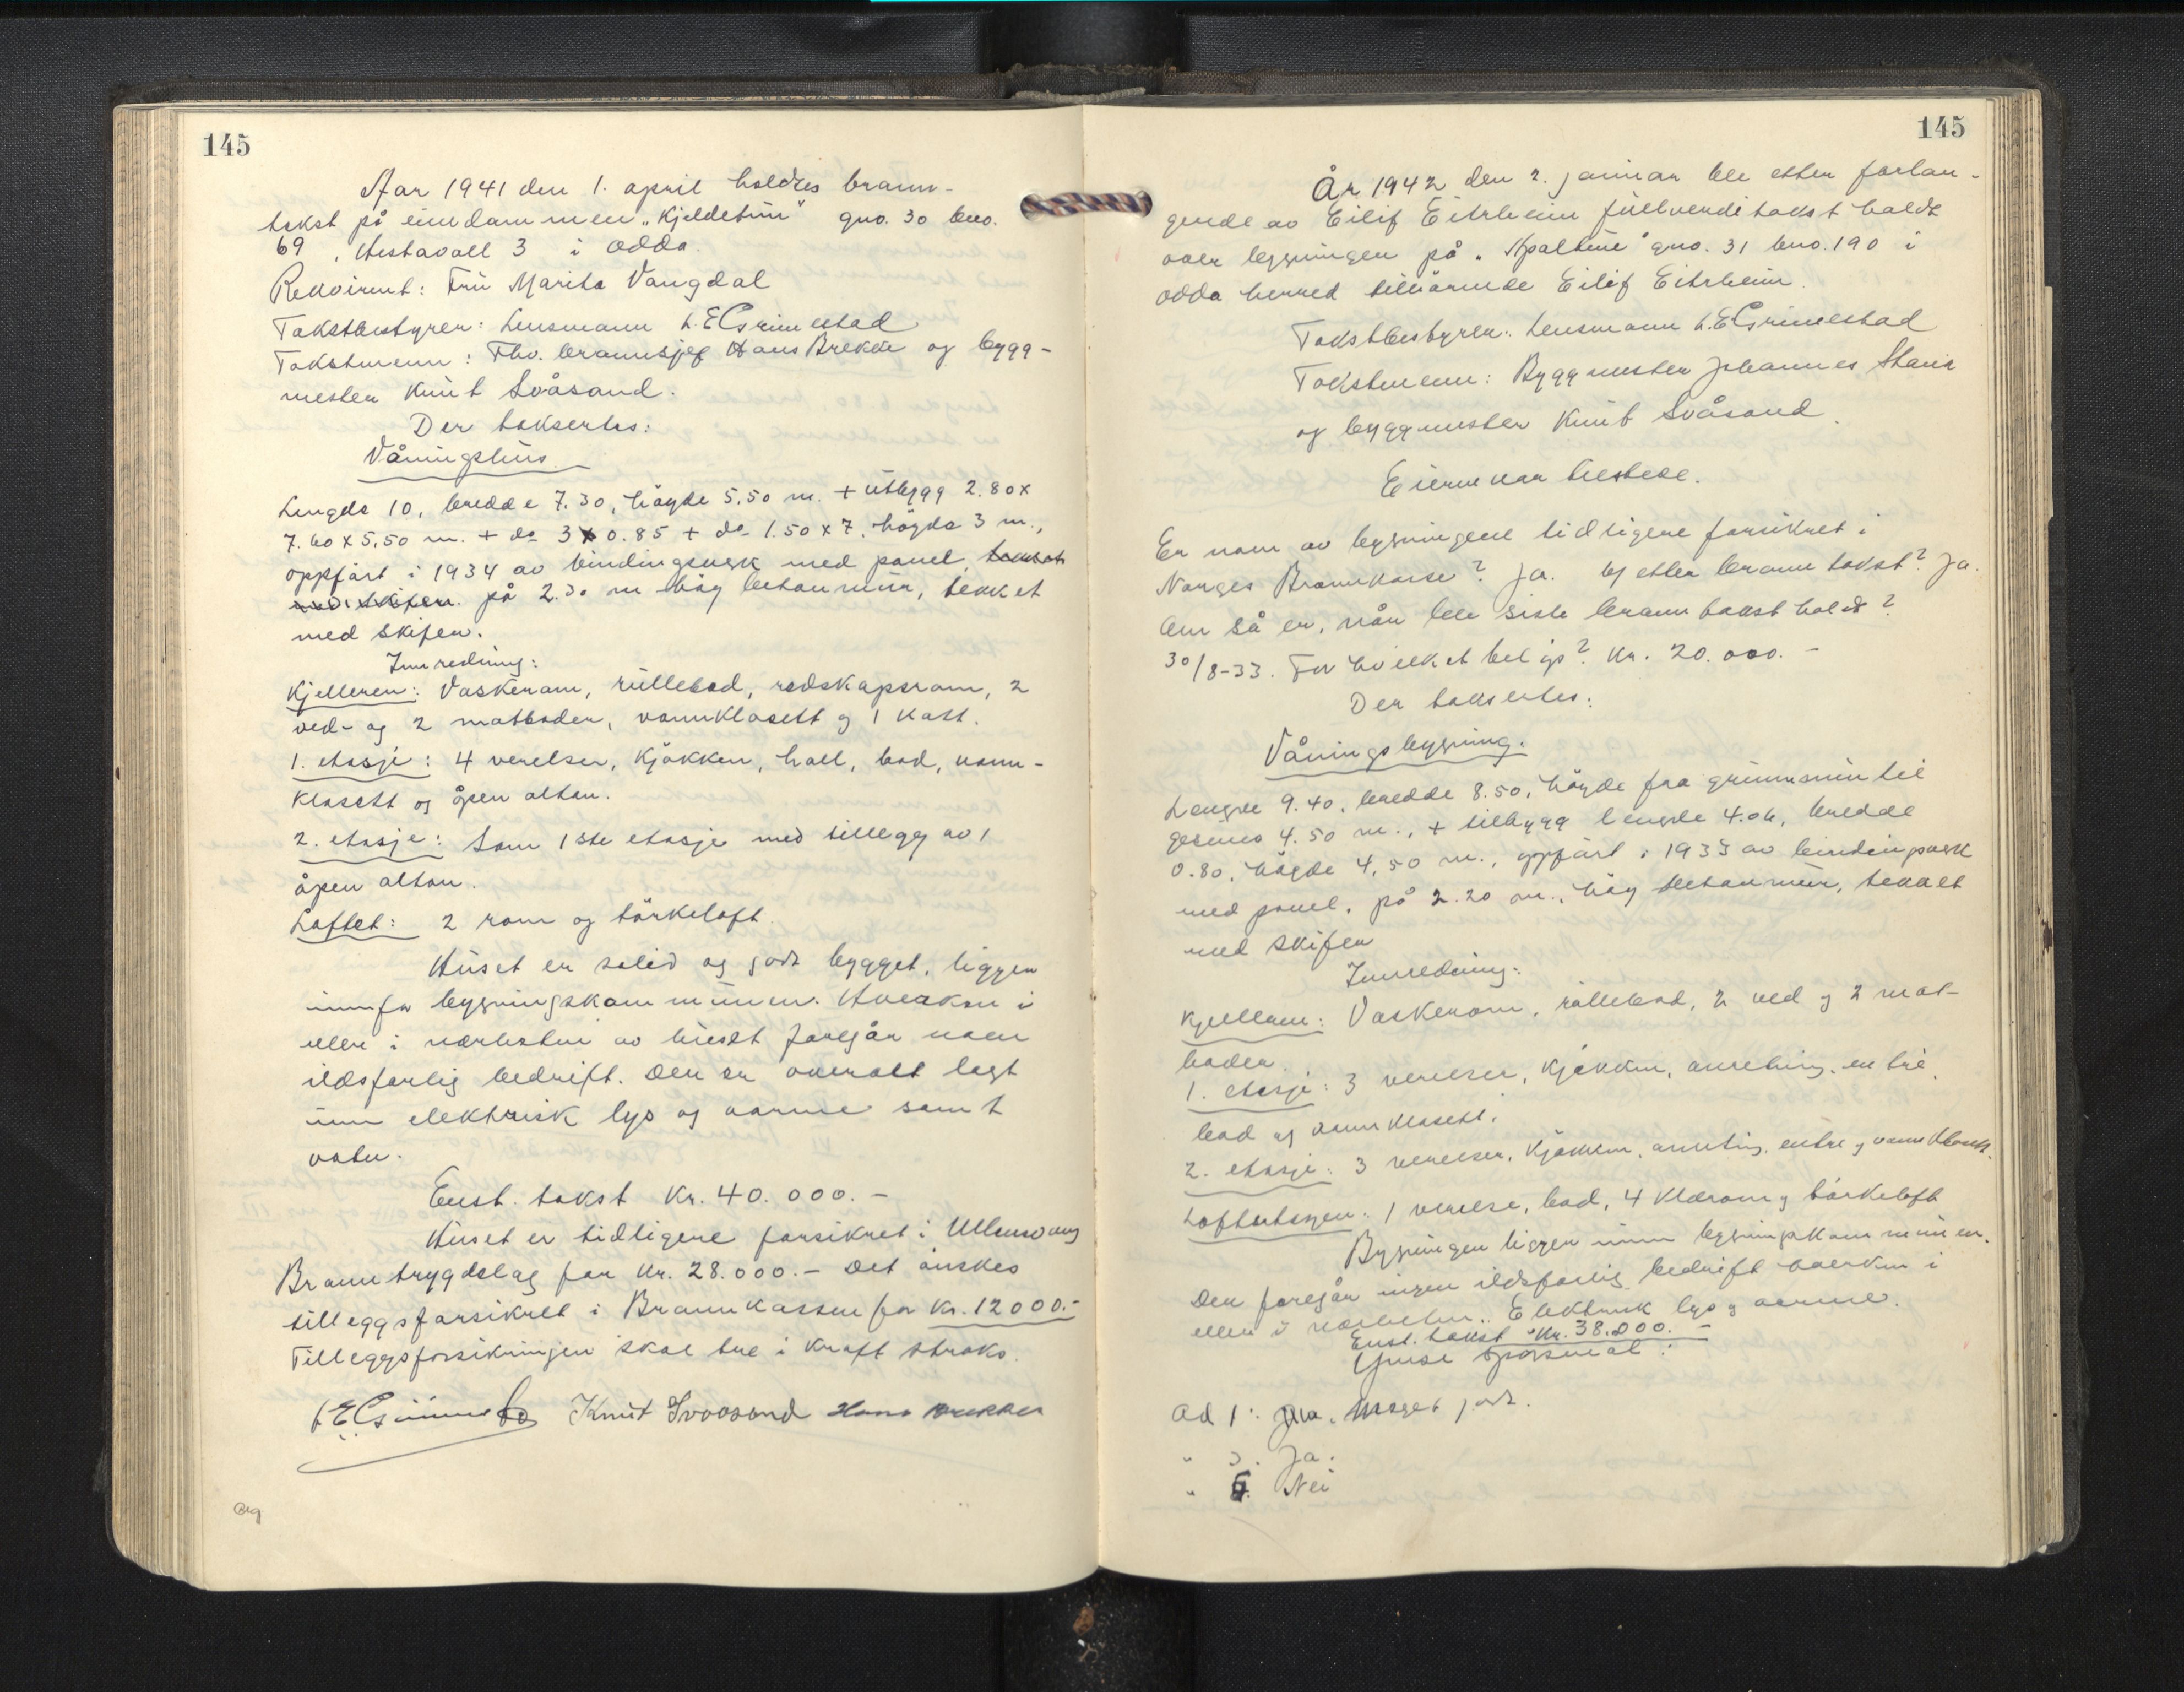 145
Aar 1941 den 1. april holdtes brann-
takst på eiendommen „Kjeldetun" gno. 30 bno.
69, Hestavoll 3 i Odda.
Rekvirent: Fru Marita Vangdal
Takstbestyrer: Lensmann L.E Grimestad
Takstmenn: Fhv. brannsjef Hans Brekke og bygg-
mester Knut Svåsand.
Der taksertes:
Våningshus
Lengde 10, bredde 7.30, høgde 5.50 m. + utbygg 2.80 x
7.60 x 5,50 m. + do 3 x 0.85 + do 1.50 x 7, høgde 3 m.,
oppført i 1934 av bindingsverk med panel,
på 2.30 m høg betonmur, tekket
med skifer.
Innredning:
Kjelleren: Vaskerom, rullebod, redskapsrom, 2
ved- og 2 matboder, vannklosett og 1 kott.
1. etasje: 4 verelser, kjøkken, hall, bad, vann-
klosett og åpen altan.
2. etasje: Som 1ste etasje med tillegg av 1
åpen altan.
Loftet: 2 rom og tørkeloft.
Huset er solid og godt bygget, ligger
innafor bygningskommunen. Hverken i
eller i nærheten av huset foregår noen
ildsfarlig bedrift. Der er overalt lagt
inn elektrisk lys og varme samt
vatn.
Enst. takst Kr. 40.000.-
Huset er tidligere forsikret i Ullensvang
Branntrygdelag for kr. 28.000.- Det ønskes
tilleggsforsikret i Brannkassen for kr. 12000.-
Tilleggsforsikringen skal tre i kraft straks.
L.E Grimestad Knut Svaasand Hans Brekke
145
År 1942 den 2. januar ble etter forlan-
gende av Eilif Eitrheim fullverditakst holdt
over bygningen på „Apaltun" gno. 31 bno. 190 i
Odda herred tilhørende Eilif Eitrheim.
Takstbestyrer: Lensmann L.E Grimestad
Takstmenn: Byggmester Johannes Stana
og byggmester Knut Svåsand.
Eieren var tilstede.
Er noen av bygningene tidligere forsikret i
Norges Brannkasse? Ja. Og etter branntakst? Ja.
Om så er, når ble siste branntakst holdt?
30/8-33. For hvilket beløp? Kr. 20.000.-
Der taksertes:
Våningsbygning.
Lengde 9.40, bredde 8.50, høgde fra grunnmur til
gesims 4.50 m., + tilbygg lengde 4.06, bredde
0.80, høgde 4,50 m., oppført i 1933 av bindingsverk
med panel, på 2.20 m., høy betonmur, tekket
med skifer
Innredning:
Kjelleren: Vaskerom, rullebod, 2 ved og 2 mat-
boder.
1. etasje: 3 verelser, kjøkken, anretning, entré,
bad og vannklosett.
2. etasje: 3 verelser, kjøkken, anretning, entre og vannklosett.
Loftsetasjen: 1 verelse, bad, 4 klærom og tørkeloft
Bygningen ligger innen bygningskommunen.
Der foregår ingen ildsfarlig bedrift hverken i
eller i nærheten. Elektrisk lys og varme.
Enst. takst Kr. 38.000.-
Ymse spørsmål:
Ad 1: Ja. Meget godt.
" 3. Ja.
" 6. Nei